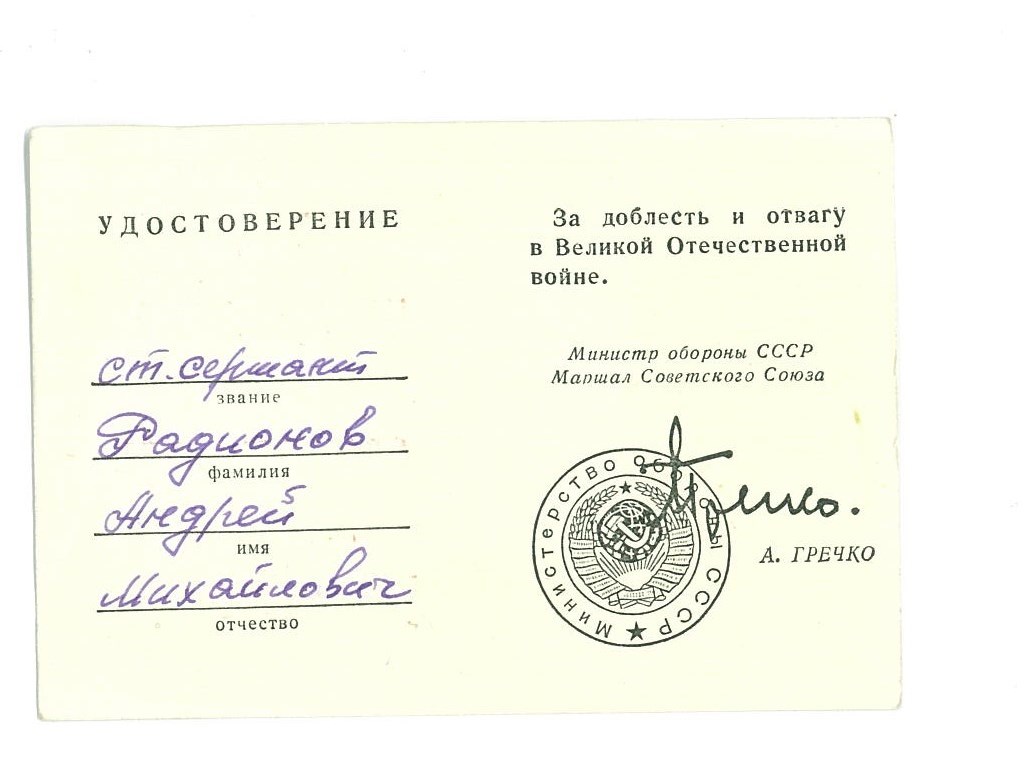 УДОСТОВЕРЕНИЕ
ст. сержант
звание
Радионов
фамилия
Андрей
имя
Михайлович
отчество
За доблесть и отвагу
в Великой Отечественной
войне.
Министр обороны СССР
Маршал Советского Союза
Министерство Обороны СССР
Гречко.
А. ГРЕЧКО